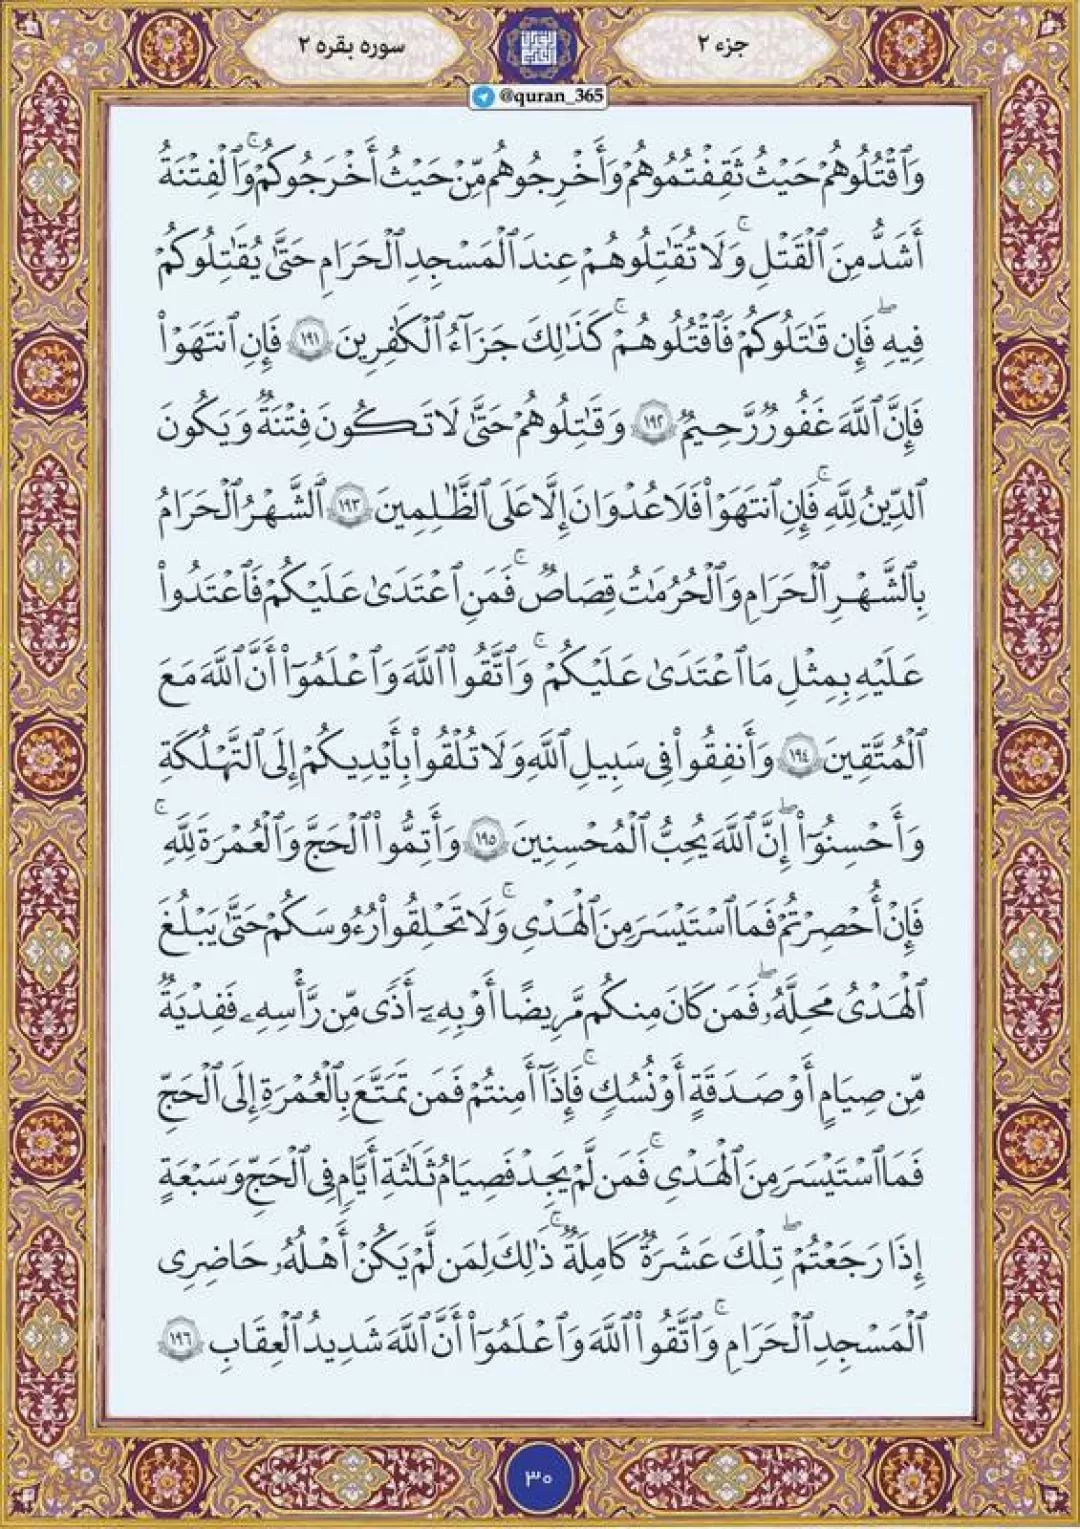 جزء ۲
سوره بقره ۲
@quran_365
وَٱقْتُلُوهُمْ حَيْثُ ثَقِفْتُمُوهُمْ وَأَخْرِجُوهُم مِّنْ حَيْثُ أَخْرَجُوكُمْ ۚ وَٱلْفِتْنَةُ
أَشَدُّ مِنَ ٱلْقَتْلِ ۚ وَلَا تُقَٰتِلُوهُمْ عِندَ ٱلْمَسْجِدِ ٱلْحَرَامِ حَتَّىٰ يُقَٰتِلُوكُمْ
فِيهِ ۖ فَإِن قَٰتَلُوكُمْ فَٱقْتُلُوهُمْ ۚ كَذَٰلِكَ جَزَآءُ ٱلْكَٰفِرِينَ ۱۹۱ فَإِنِ ٱنتَهَوْا۟
فَإِنَّ ٱللَّهَ غَفُورٌ رَّحِيمٌ ۱۹۲ وَقَٰتِلُوهُمْ حَتَّىٰ لَا تَكُونَ فِتْنَةٌ وَيَكُونَ
ٱلدِّينُ لِلَّهِ ۖ فَإِنِ ٱنتَهَوْا۟ فَلَا عُدْوَانَ إِلَّا عَلَى ٱلظَّٰلِمِينَ ۱۹۳ ٱلشَّهْرُ ٱلْحَرَامُ
بِٱلشَّهْرِ ٱلْحَرَامِ وَٱلْحُرُمَٰتُ قِصَاصٌ ۚ فَمَنِ ٱعْتَدَىٰ عَلَيْكُمْ فَٱعْتَدُوا۟
عَلَيْهِ بِمِثْلِ مَا ٱعْتَدَىٰ عَلَيْكُمْ ۚ وَٱتَّقُوا۟ ٱللَّهَ وَٱعْلَمُوٓا۟ أَنَّ ٱللَّهَ مَعَ
ٱلْمُتَّقِينَ ۱۹٤ وَأَنفِقُوا۟ فِى سَبِيلِ ٱللَّهِ وَلَا تُلْقُوا۟ بِأَيْدِيكُمْ إِلَى ٱلتَّهْلُكَةِ
وَأَحْسِنُوٓا۟ ۖ إِنَّ ٱللَّهَ يُحِبُّ ٱلْمُحْسِنِينَ ۱۹۵ وَأَتِمُّوا۟ ٱلْحَجَّ وَٱلْعُمْرَةَ لِلَّهِ ۚ
فَإِنْ أُحْصِرْتُمْ فَمَا ٱسْتَيْسَرَ مِنَ ٱلْهَدْىِ ۖ وَلَا تَحْلِقُوا۟ رُءُوسَكُمْ حَتَّىٰ يَبْلُغَ
ٱلْهَدْىُ مَحِلَّهُۥ ۚ فَمَن كَانَ مِنكُم مَّرِيضًا أَوْ بِهِۦٓ أَذًى مِّن رَّأْسِهِۦ فَفِدْيَةٌ
مِّن صِيَامٍ أَوْ صَدَقَةٍ أَوْ نُسُكٍ ۚ فَإِذَآ أَمِنتُمْ فَمَن تَمَتَّعَ بِٱلْعُمْرَةِ إِلَى ٱلْحَجِّ
فَمَا ٱسْتَيْسَرَ مِنَ ٱلْهَدْىِ ۚ فَمَن لَّمْ يَجِدْ فَصِيَامُ ثَلَٰثَةِ أَيَّامٍ فِى ٱلْحَجِّ وَسَبْعَةٍ
إِذَا رَجَعْتُمْ ۗ تِلْكَ عَشَرَةٌ كَامِلَةٌ ۗ ذَٰلِكَ لِمَن لَّمْ يَكُنْ أَهْلُهُۥ حَاضِرِى
ٱلْمَسْجِدِ ٱلْحَرَامِ ۚ وَٱتَّقُوا۟ ٱللَّهَ وَٱعْلَمُوٓا۟ أَنَّ ٱللَّهَ شَدِيدُ ٱلْعِقَابِ ۱۹٦
۳۰